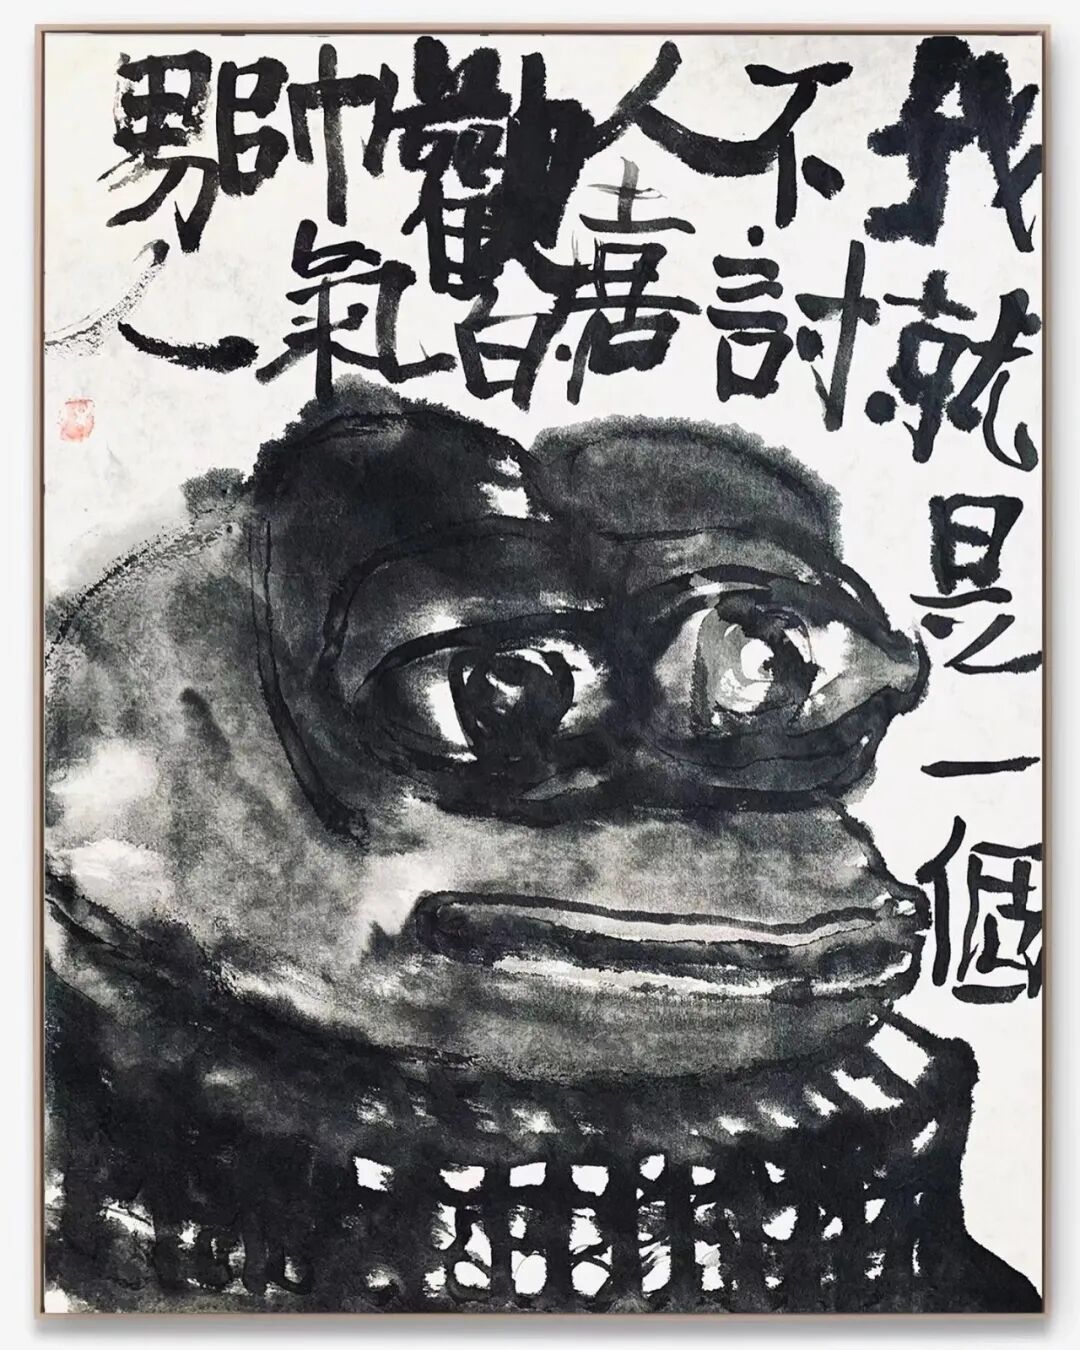 我就是一個
不討
人喜
歡的
帥氣
男人